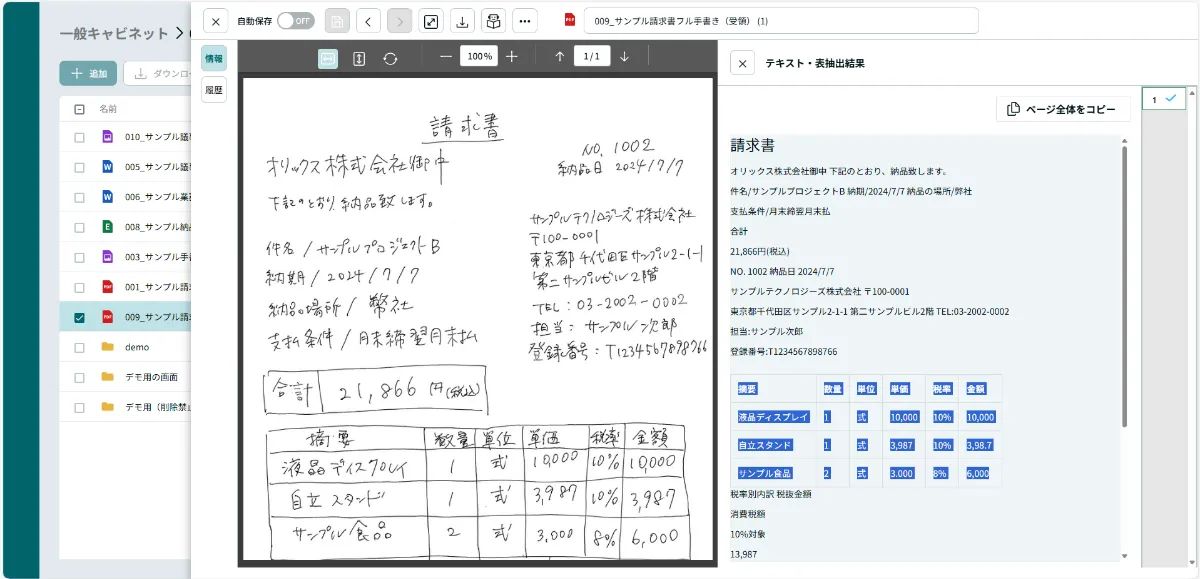 一般キャビネット
追加
ダウンロ
名前
010_サンプル議
005_サンプル議
006_サンプル業
008_サンプル納
003_サンプル手
001_サンプル請
009_サンプル請
demo
デモ用の画面
デモ用（削除禁止
自動保存 OFF
009_サンプル請求書フル手書き（受領） (1)
情報
履歴
100%
1/1
請求書
NO. 1002
オリックス株式会社御中
納品日 2024/7/7
下記のとおり、納品致します。
サンプルテクノロジーズ株式会社
〒100-0001
件名/サンプルプロジェクトB
東京都千代田区サンプル2-1-1
納期/2024/7/7
第二サンプルビル2階
納品場所/弊社
TEL:03-2002-0002
担当:サンプル次郎
支払条件/月末締翌月末払
登録番号:T1234567898766
合計 21,866円(税込)
摘要 数量 単位 単価 税率 金額
液晶ディスプレイ 1 式 10,000 10% 10,000
自立スタンド 1 式 3,987 10% 3,987
サンプル食品 2 式 3,000 8% 6,000
テキスト・表抽出結果
ページ全体をコピー
1
請求書
オリックス株式会社御中 下記のとおり、納品致します。
件名/サンプルプロジェクトB 納期/2024/7/7 納品の場所/弊社
支払条件/月末締翌月末払
合計
21,866円(税込)
NO. 1002 納品日 2024/7/7
サンプルテクノロジーズ株式会社 〒100-0001
東京都千代田区サンプル2-1-1 第二サンプルビル2階 TEL:03-2002-0002
担当:サンプル次郎
登録番号:T1234567898766
摘要 数量 単位 単価 税率 金額
液晶ディスプレイ 1 式 10,000 10% 10,000
自立スタンド 1 式 3,987 10% 3,98.7
サンプル食品 2 式 3.000 8% 6,000
税率別内訳 税抜金額
消費税額
10%対象
13,987